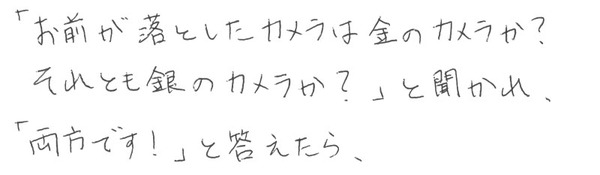 「お前が落としたカメラは金のカメラか?
それとも銀のカメラか?」と聞かれ、
「両方です!」と答えたら、